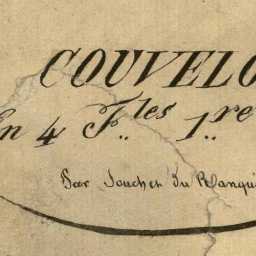 COUVELO
En 4 F.les 1.re
Par Souchet Du Rlanqui